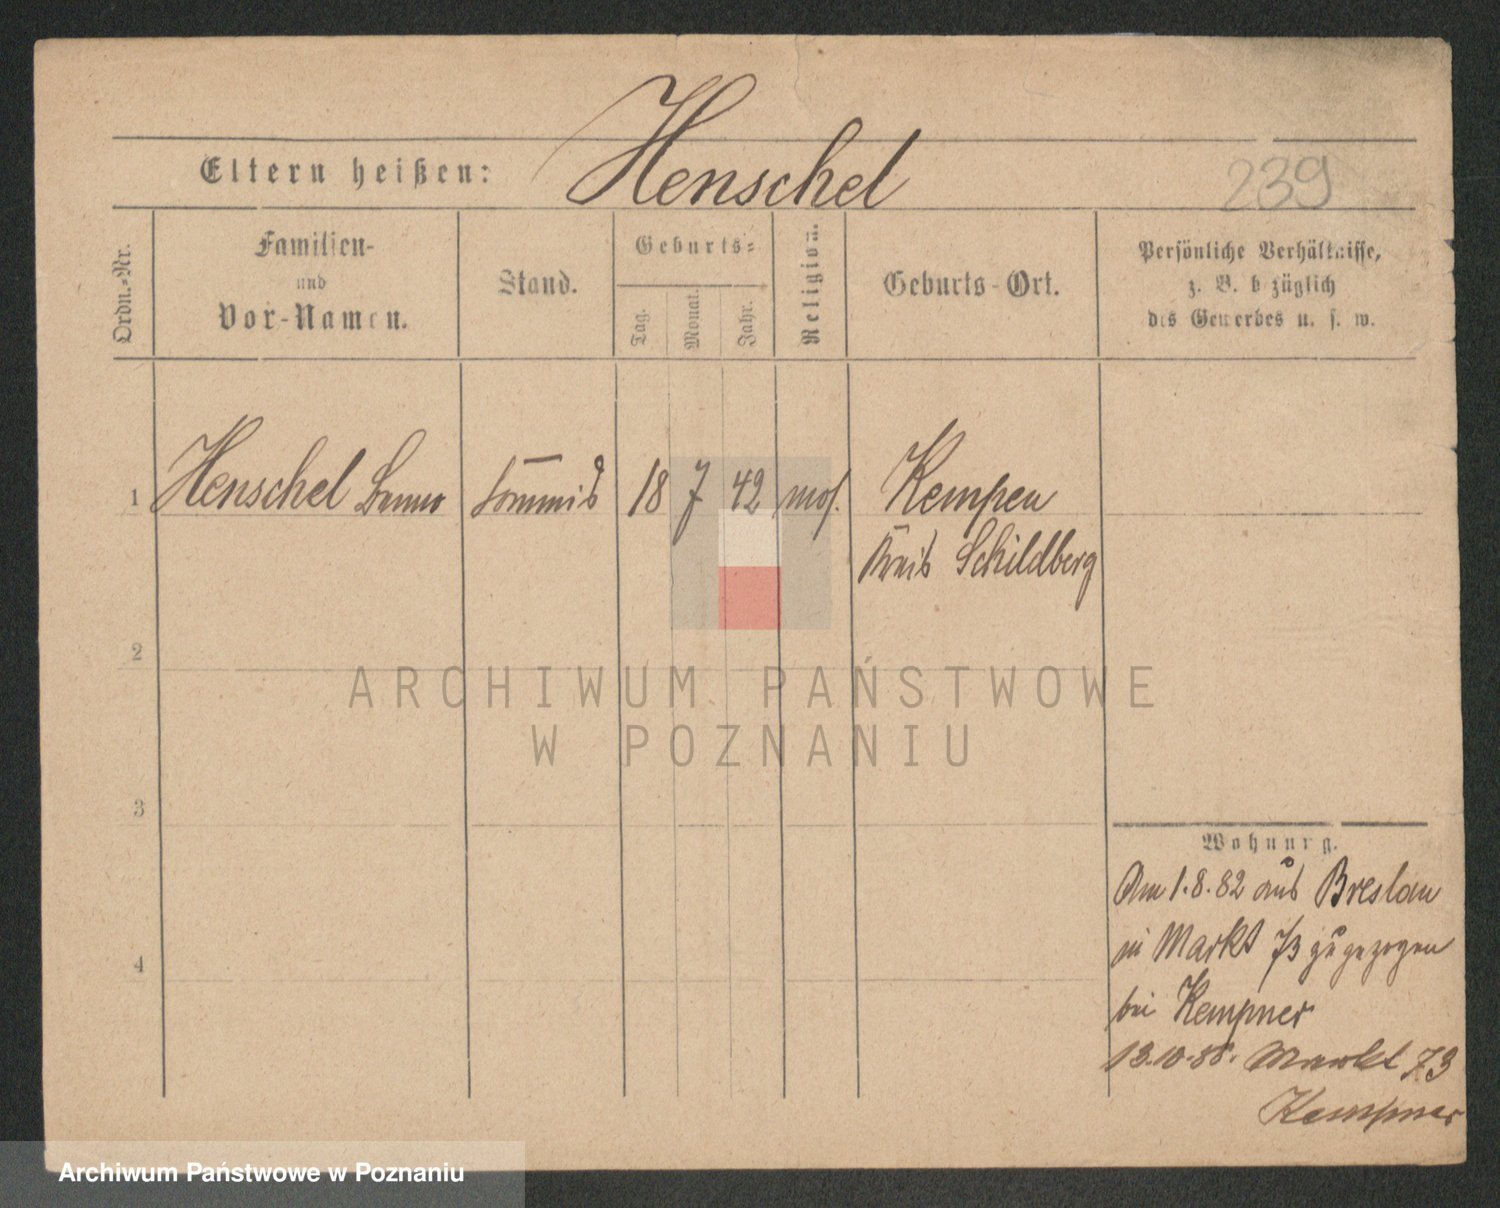 Henschel
Eltern heißen:
239
Ordn.-Nr.
Familien-
und
Vor-Namen.
Stand.
Geburts-
Tag.
Monat.
Jahr.
Religion.
Geburts-Ort.
Persönliche Verhältnisse,
z. B. bezüglich
des Gewerbes u. s. w.
1 Henschel Benno Commis 18 7 42 mos. Kempen
Kreis Schildberg
2
3
4
Wohnung.
Am 1.8.82 aus Breslau
in Markt 73 zugezogen
bei Kempner
Markt 73
Kempner
ARCHIWUM PAŃSTWOWE
W POZNANIU
Archiwum Państwowe w Poznaniu